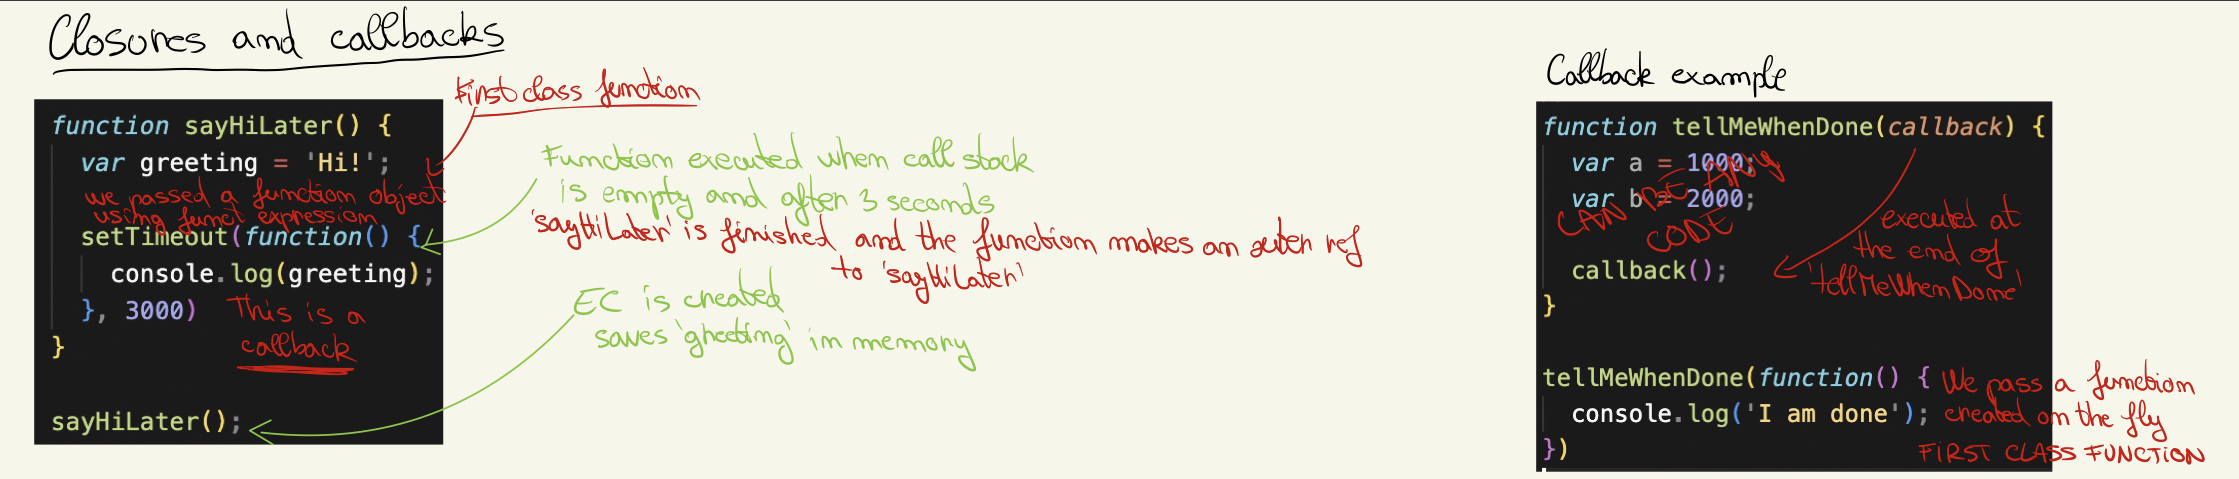 Closures and callbacks
First class function
function sayHiLater() {
var greeting = 'Hi!';
we passed a function object
using funct expression
setTimeout(function() {
console.log(greeting);
}, 3000)
This is a
callback
}
sayHiLater();
Function executed when call stack
is empty and after 3 seconds
'sayHiLater' is finished and the function makes an outer ref
to 'sayHiLater'
EC is created
saves 'greeting' in memory
Callback example
function tellMeWhenDone(callback) {
var a = 1000;
var b = 2000;
CAN BE ANY
CODE
callback();
}
executed at
the end of
'tellMeWhenDone'
tellMeWhenDone(function() {
console.log('I am done');
})
We pass a function
created on the fly
FIRST CLASS FUNCTION